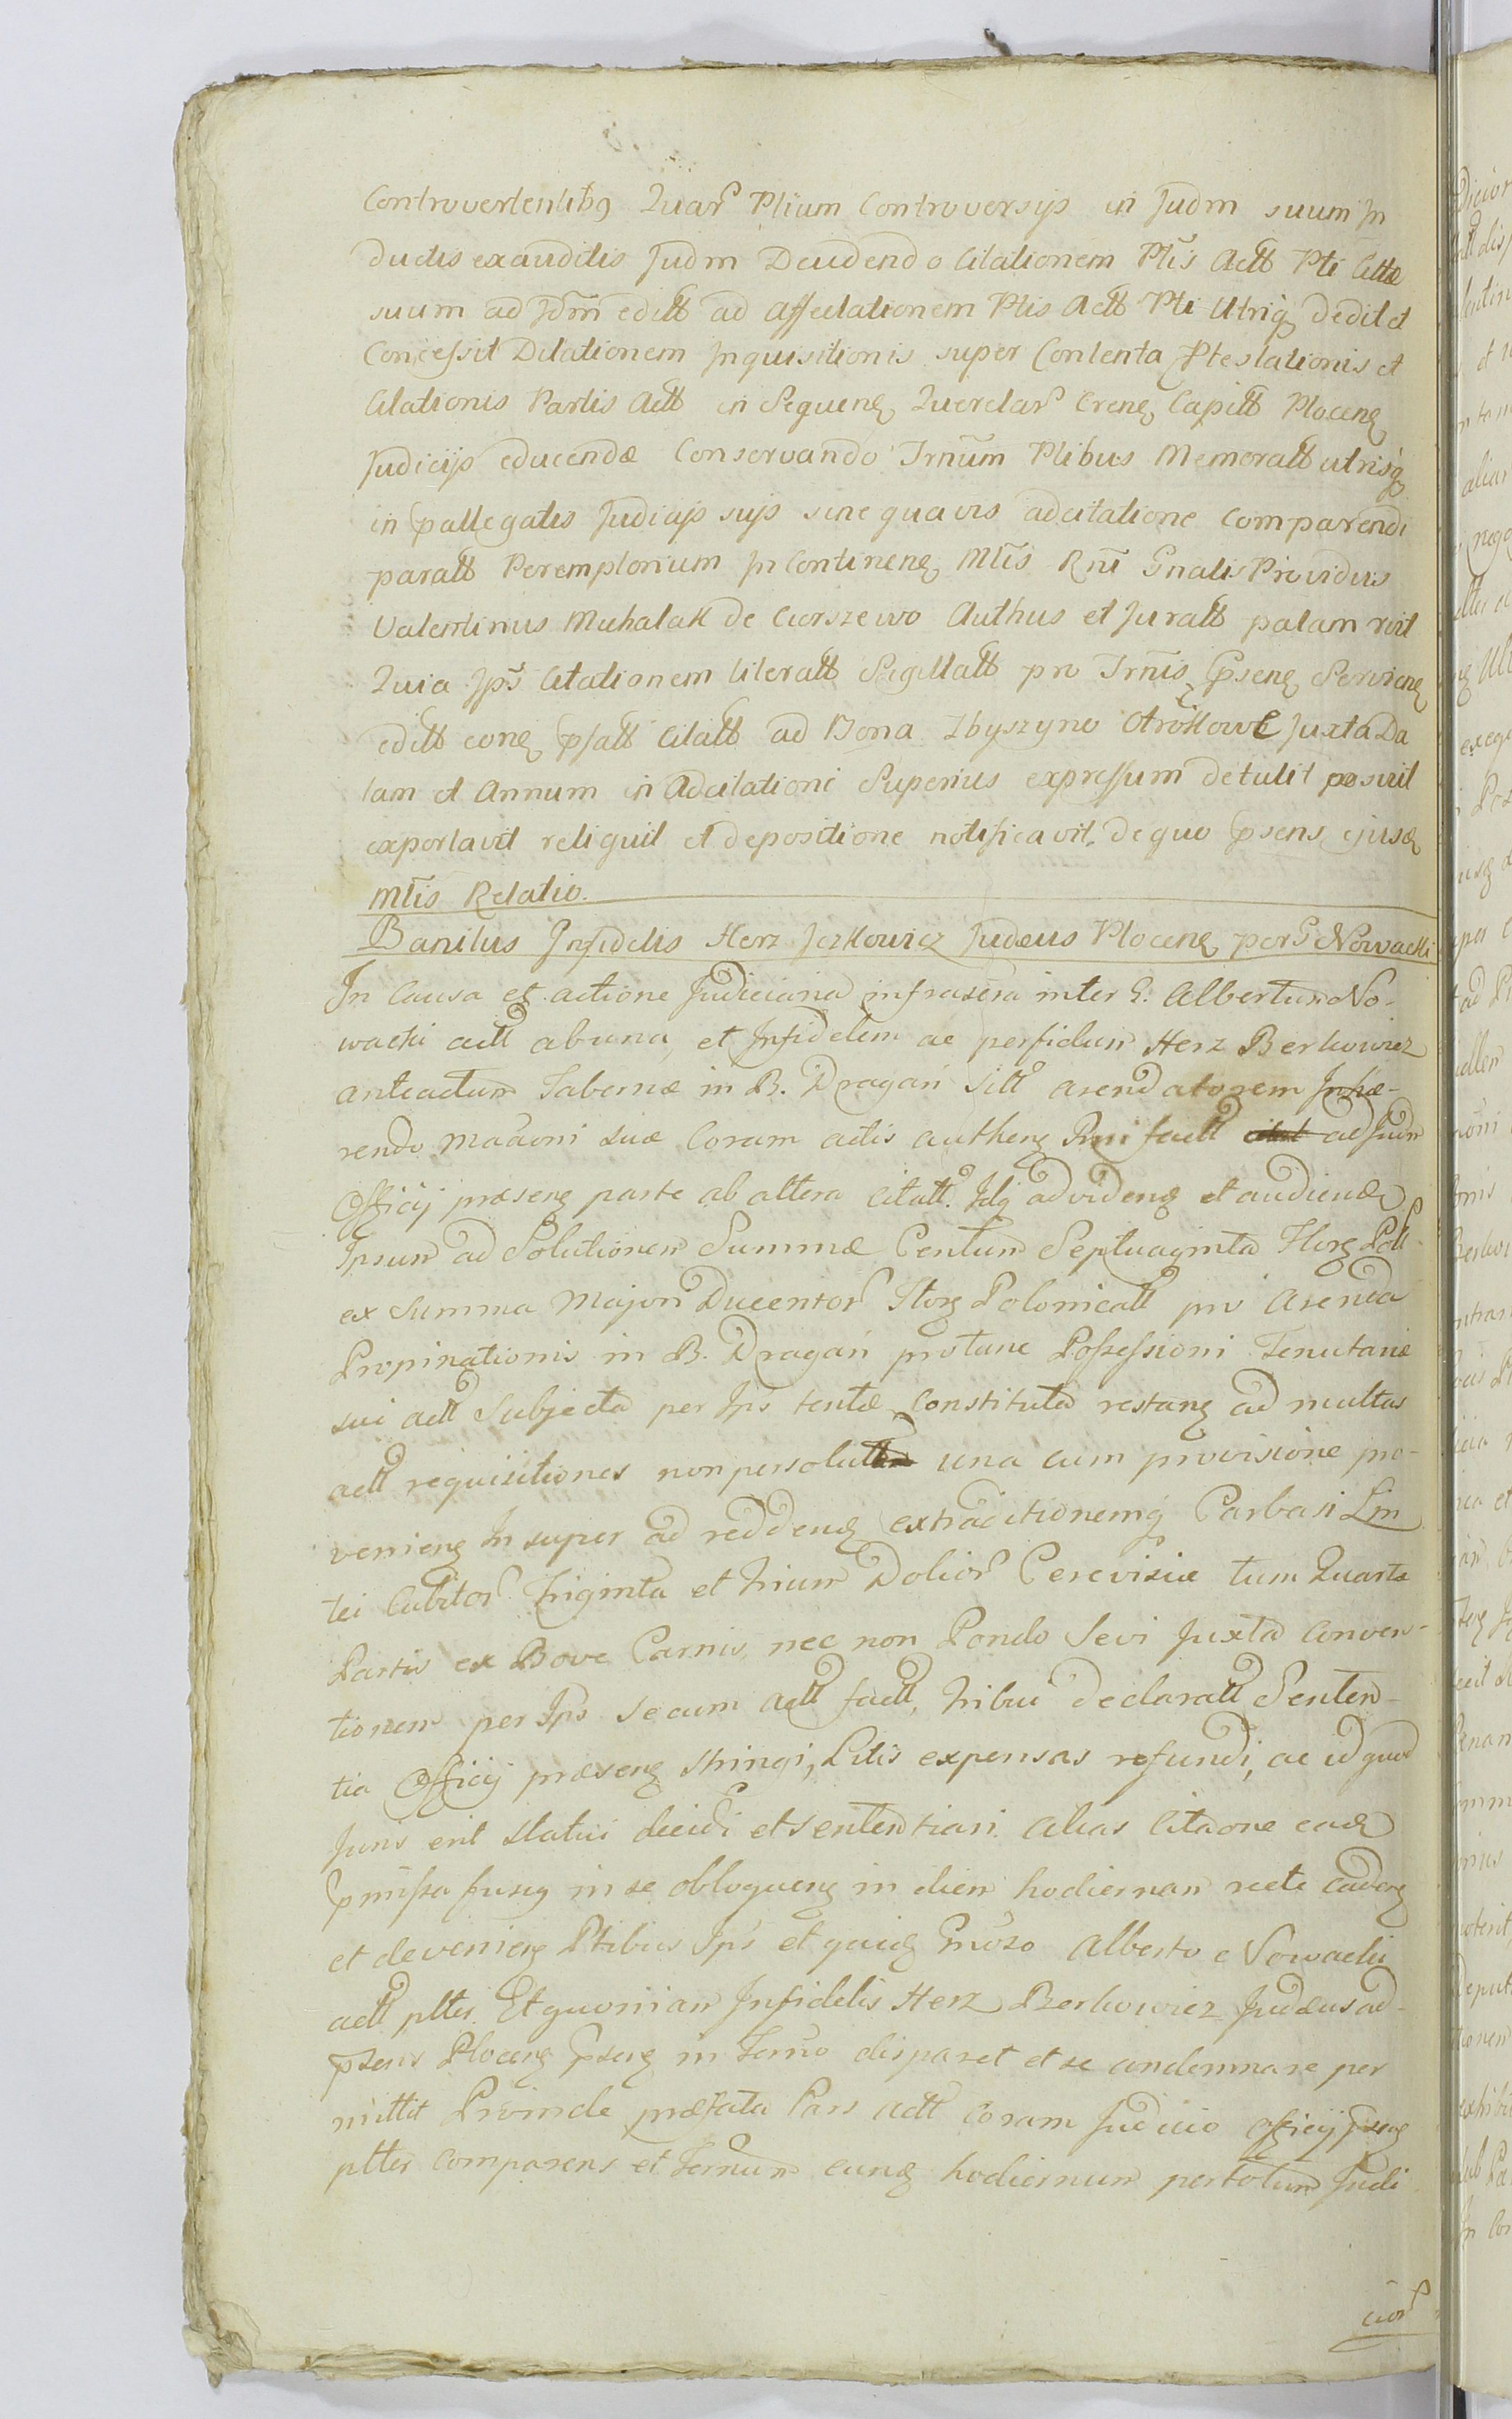 Controvertentibq Quar Ptium Controversijs in Judm suum In
ductis exauditis Judm Deudendo Citationem Ptis Actt Pti Cittæ
suum ad Jdm editt ad affectationem Ptis Actt Pti Utriq dedit et
Concessit Dilationem Inquisitionis super Contenta Ptestationis et
Citationis Partis Actt in Sequenq Querelar Crenq Capitt Plocenq
Judicijs educendæ Conservando Trnum Ptibus Memoratt utrisq
in pallegatis Judicijs sujs sine quavis adcitatione comparendi
paratt Peremptorium In Continenq Mtis Rni Gnalis Providus
Valentinus Muhalak de Ciorszewo Authus et Juratt palam rvit
Quia Jps Citationem literatt Sigillatt pro Trnis Psenq Servienq
editt conq psatt Citatt ad Bona Zbyszyno Otrokowe Juxta Da
tam et Annum in Adcitatione Superius expressum detulit posuit
exportavit reliquit et depositione notificavit, de quo psens ejusd
Mtis Relatio.
Banitus Infidelis Herz Jezkowicz Judæus Plocenq per G Nowacki
In Causa et actione Judiciaria infrascra inter G: Albertum No-
wacki actt ab una, et Infidelem ac perfidum Herz Berkowicz
anteactum Tabernæ in B. Dragań sitt arendatorem Inhæ-
rendo maãoni suæ Coram actis authenq Rni factt ad Judm
Officij præsenq parte ab altera citatt. Idq ad videnq et audiend
Ipsum ad Solutionem Summæ Centum Septuaginta Florq Poll
ex Summa Majori Ducentor Florq Polonicatt pro Arenda
Propinationis in B. Dragań protunc Possessioni Tenutariæ
sui actt Subjecta per Ips tentæ constituta restanq ad multas
actt requisitiones non persolutt una cum provisione pro-
venienq Insuper ad reddend extraditionemq Carbasi Lin
tei Cubitor Triginta et trium Dolior Cerevisiæ tum Quarta
Partis ex Bove Carnis, nec non Pondo Sevi Juxta Conven-
tionem per Ips secum actt factt, tribui declaratt Senten-
tia Officij præsenq stringi, Litis expensas refundi, ac id quod
Juris erit statui decidi et sententiari. alias Citaone eadq
pmissa fusiq in se obloquenq in diem hodiernam recte cadenq
et devenienq Ptibus Ips et quidq Gnoso Alberto Nowacki
actt ptter. Et quoniam Infidelis Herz Berkowicz Judæus ad-
psens Plocenq psenq in Termo disparet et se condemnare per
mittit Proinde præfata Pars actt coram Judicio Officij psenq
ptter comparens et Termum eunq hodiernum per totum Judi
cior